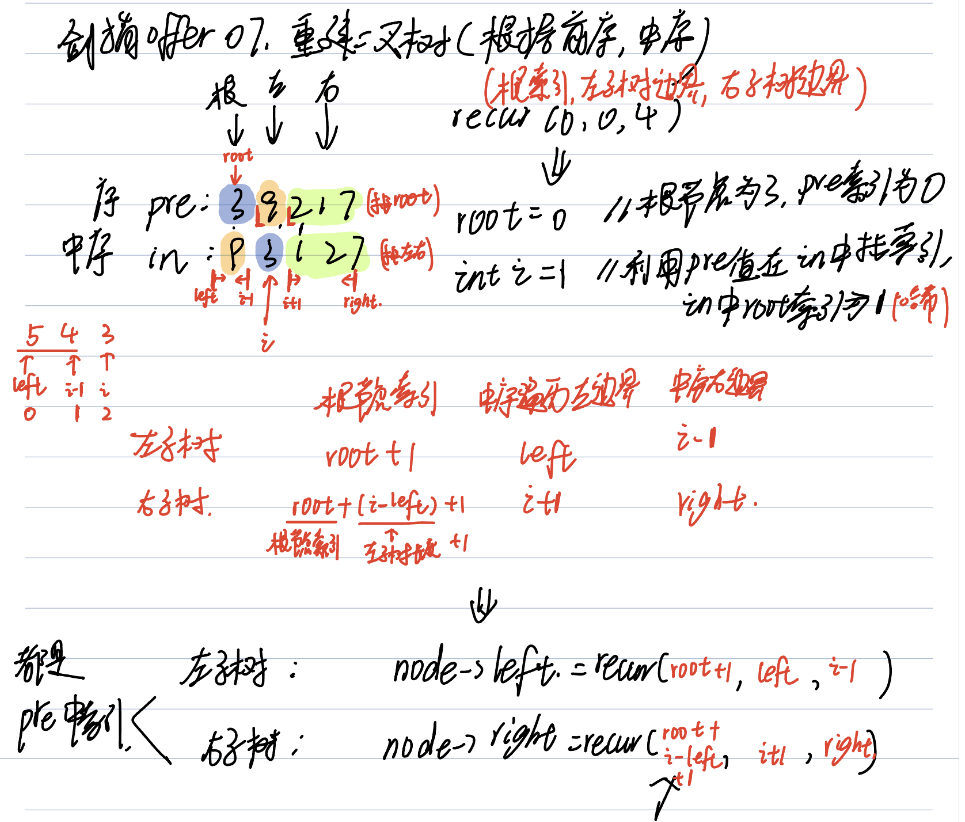 剑指offer 07. 重建二叉树(根据前序,中序)
根 左 右
(根索引,左子树边界,右子树边界)
recur (0, 0, 4)
root
序 pre: 3 9 2 1 7 (找root)
中序 in : 9 3 1 2 7 (找左右)
left i-1 i+1 right.
i
root = 0 //根节点为3,pre索引为0
int i = 1 //利用pre值在in中找索引,
in中root索引为1(哈希)
5 4 3
left i-1 i
0 1 2
根节点索引 中序遍历左边界 中序右边界
左子树 root+1 left i-1
右子树. root+(i-left)+1 i+1 right.
根节点索引 左子树长度 +1
都是
pre中索引.
左子树: node->left. = recur(root+1, left, i-1)
右子树: node->right = recur(root+
i-left, i+1, right)
+1